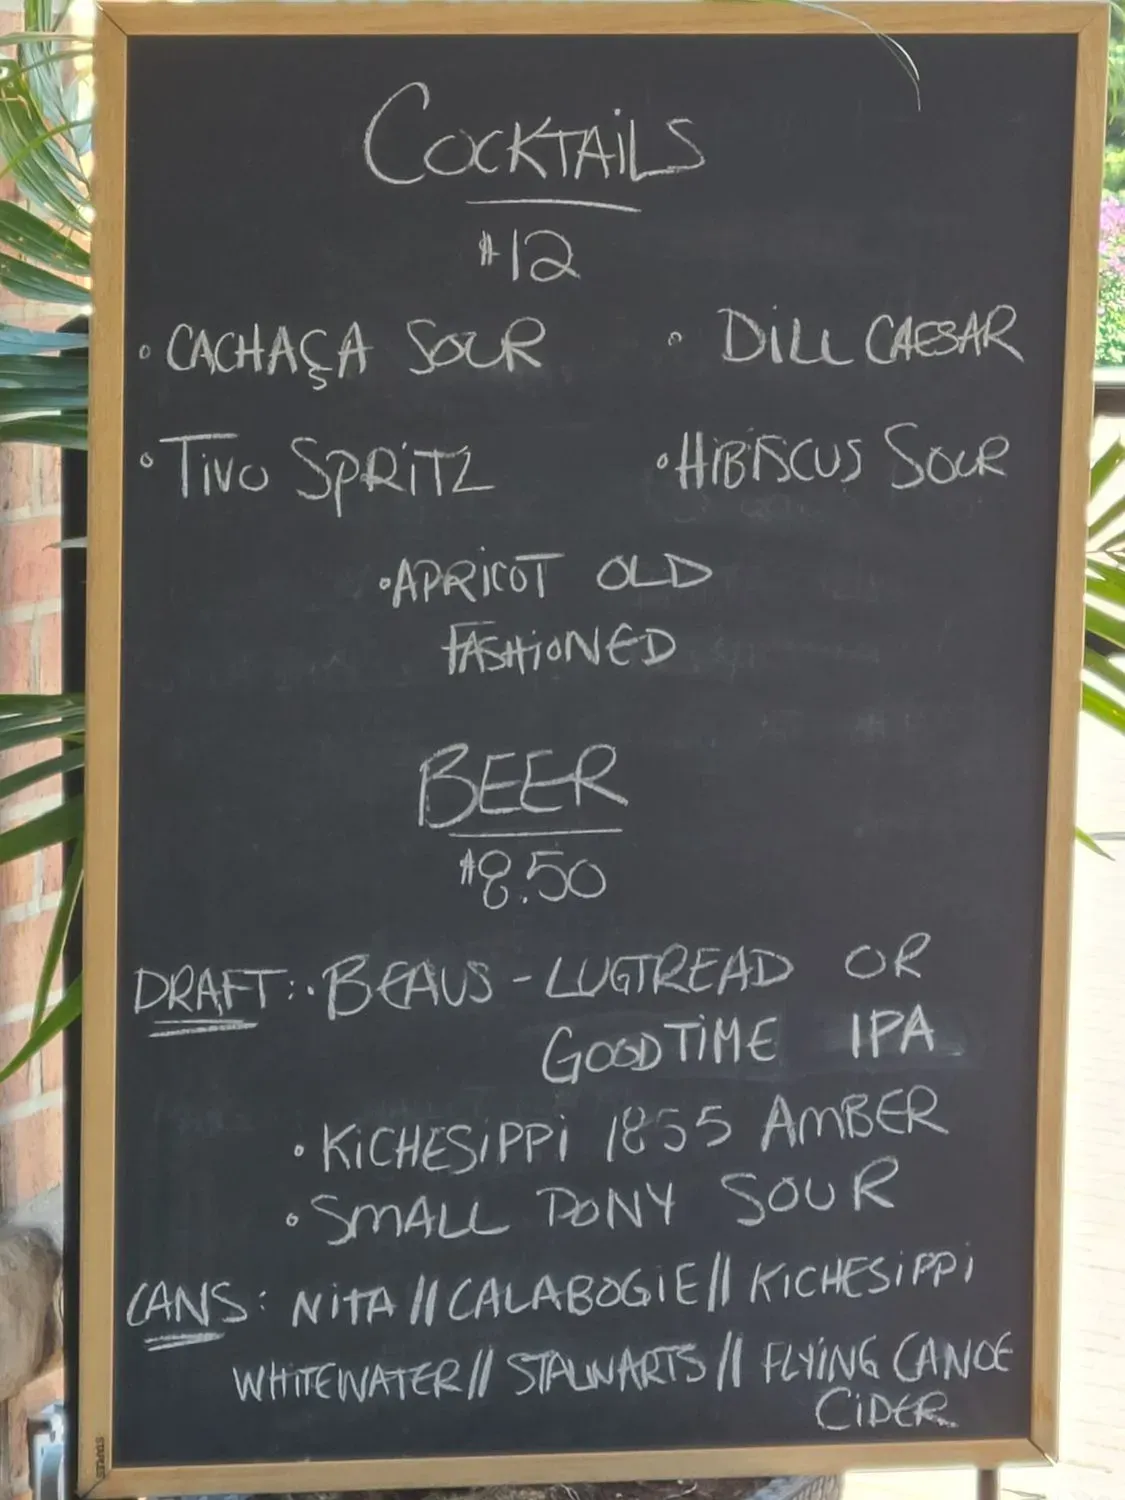 COCKTAILS
$12
• CACHAÇA SOUR • DILL CAESAR
• TIVO SPRITZ • HIBISCUS SOUR
• APRICOT OLD
FASHIONED
BEER
$8.50
DRAFT: • BEAUS - LUGTREAD OR
GOODTIME IPA
• KICHESIPPI 1855 AMBER
• SMALL PONY SOUR
CANS: NITA // CALABOGIE // KICHESIPPI
WHITEWATER // STALWARTS // FLYING CANOE
CIDER
STAPLES